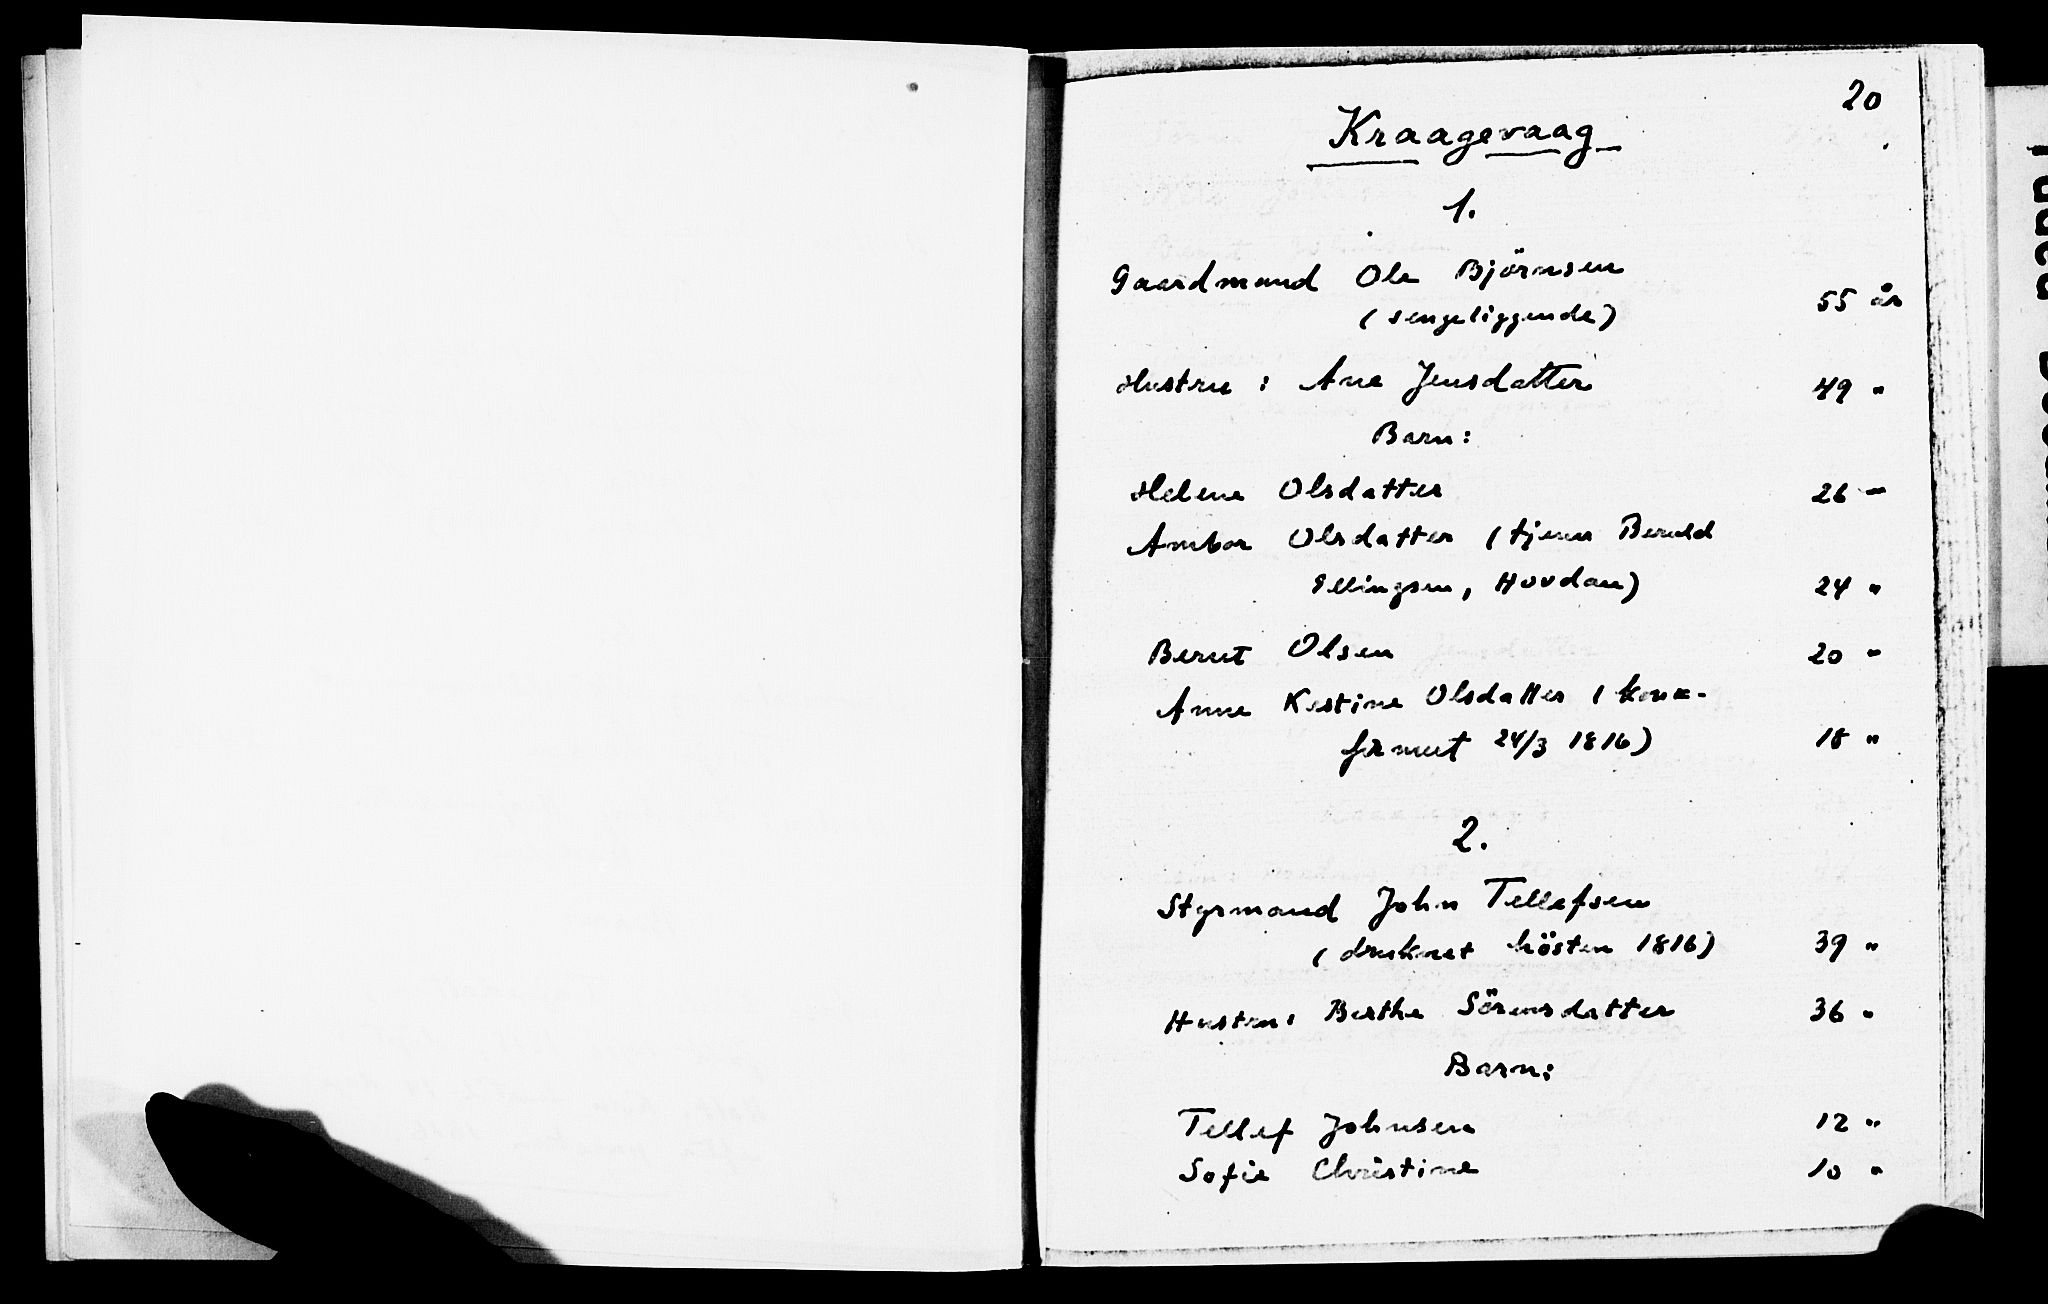 20
Kraagevaag
1.
Gaardmand Ole Björnsen
(sengeliggende) 55 år
Hustru: Ane Jensdatter 49 "
Barn:
Helene Olsdatter 26 "
Anbor Olsdatter (tjener Beruld
Ellingsen, Hovdan) 24 "
Bernt Olsen 20 "
Anne Kestine Olsdatter (kon-
firmert 24/3 1816) 18 "
2.
Styrmand John Tellefsen
(druknet hösten 1816) 39 "
Hustru: Berthe Sörensdatter 36 "
Barn:
Tellef Johnsen 12 "
Sofie Christine 10 "